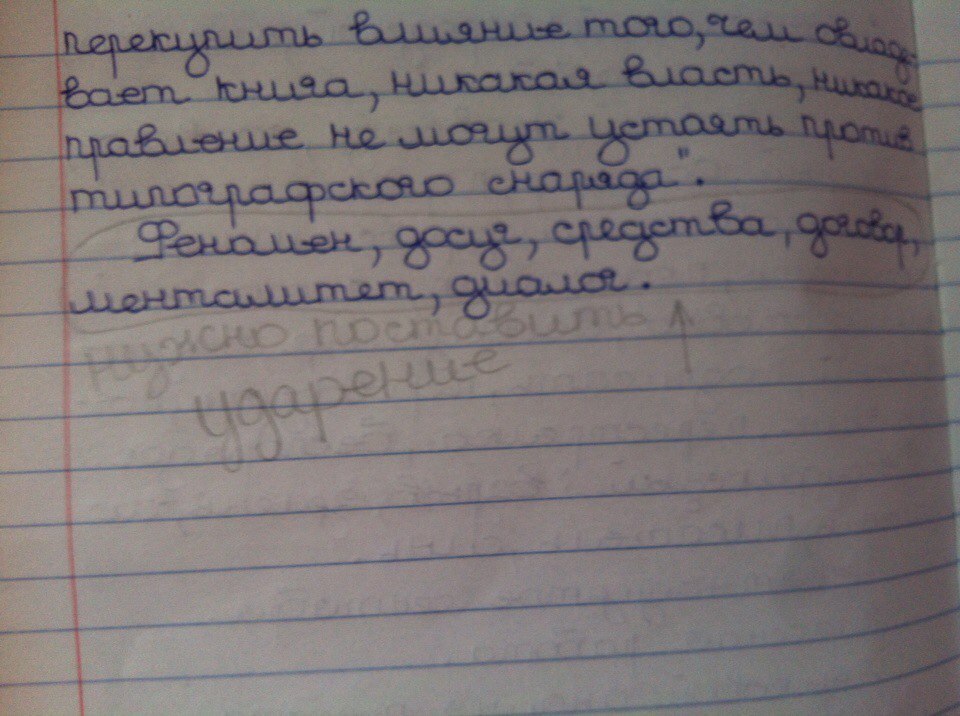 перекупить влияние того, чем овладе-
вает книга, никакая власть, никакое
правление не могут устоять против
типографского снаряда".
Феномен, досуг, средства, договор,
менталитет, диалог.
нужно поставить ↑
ударение